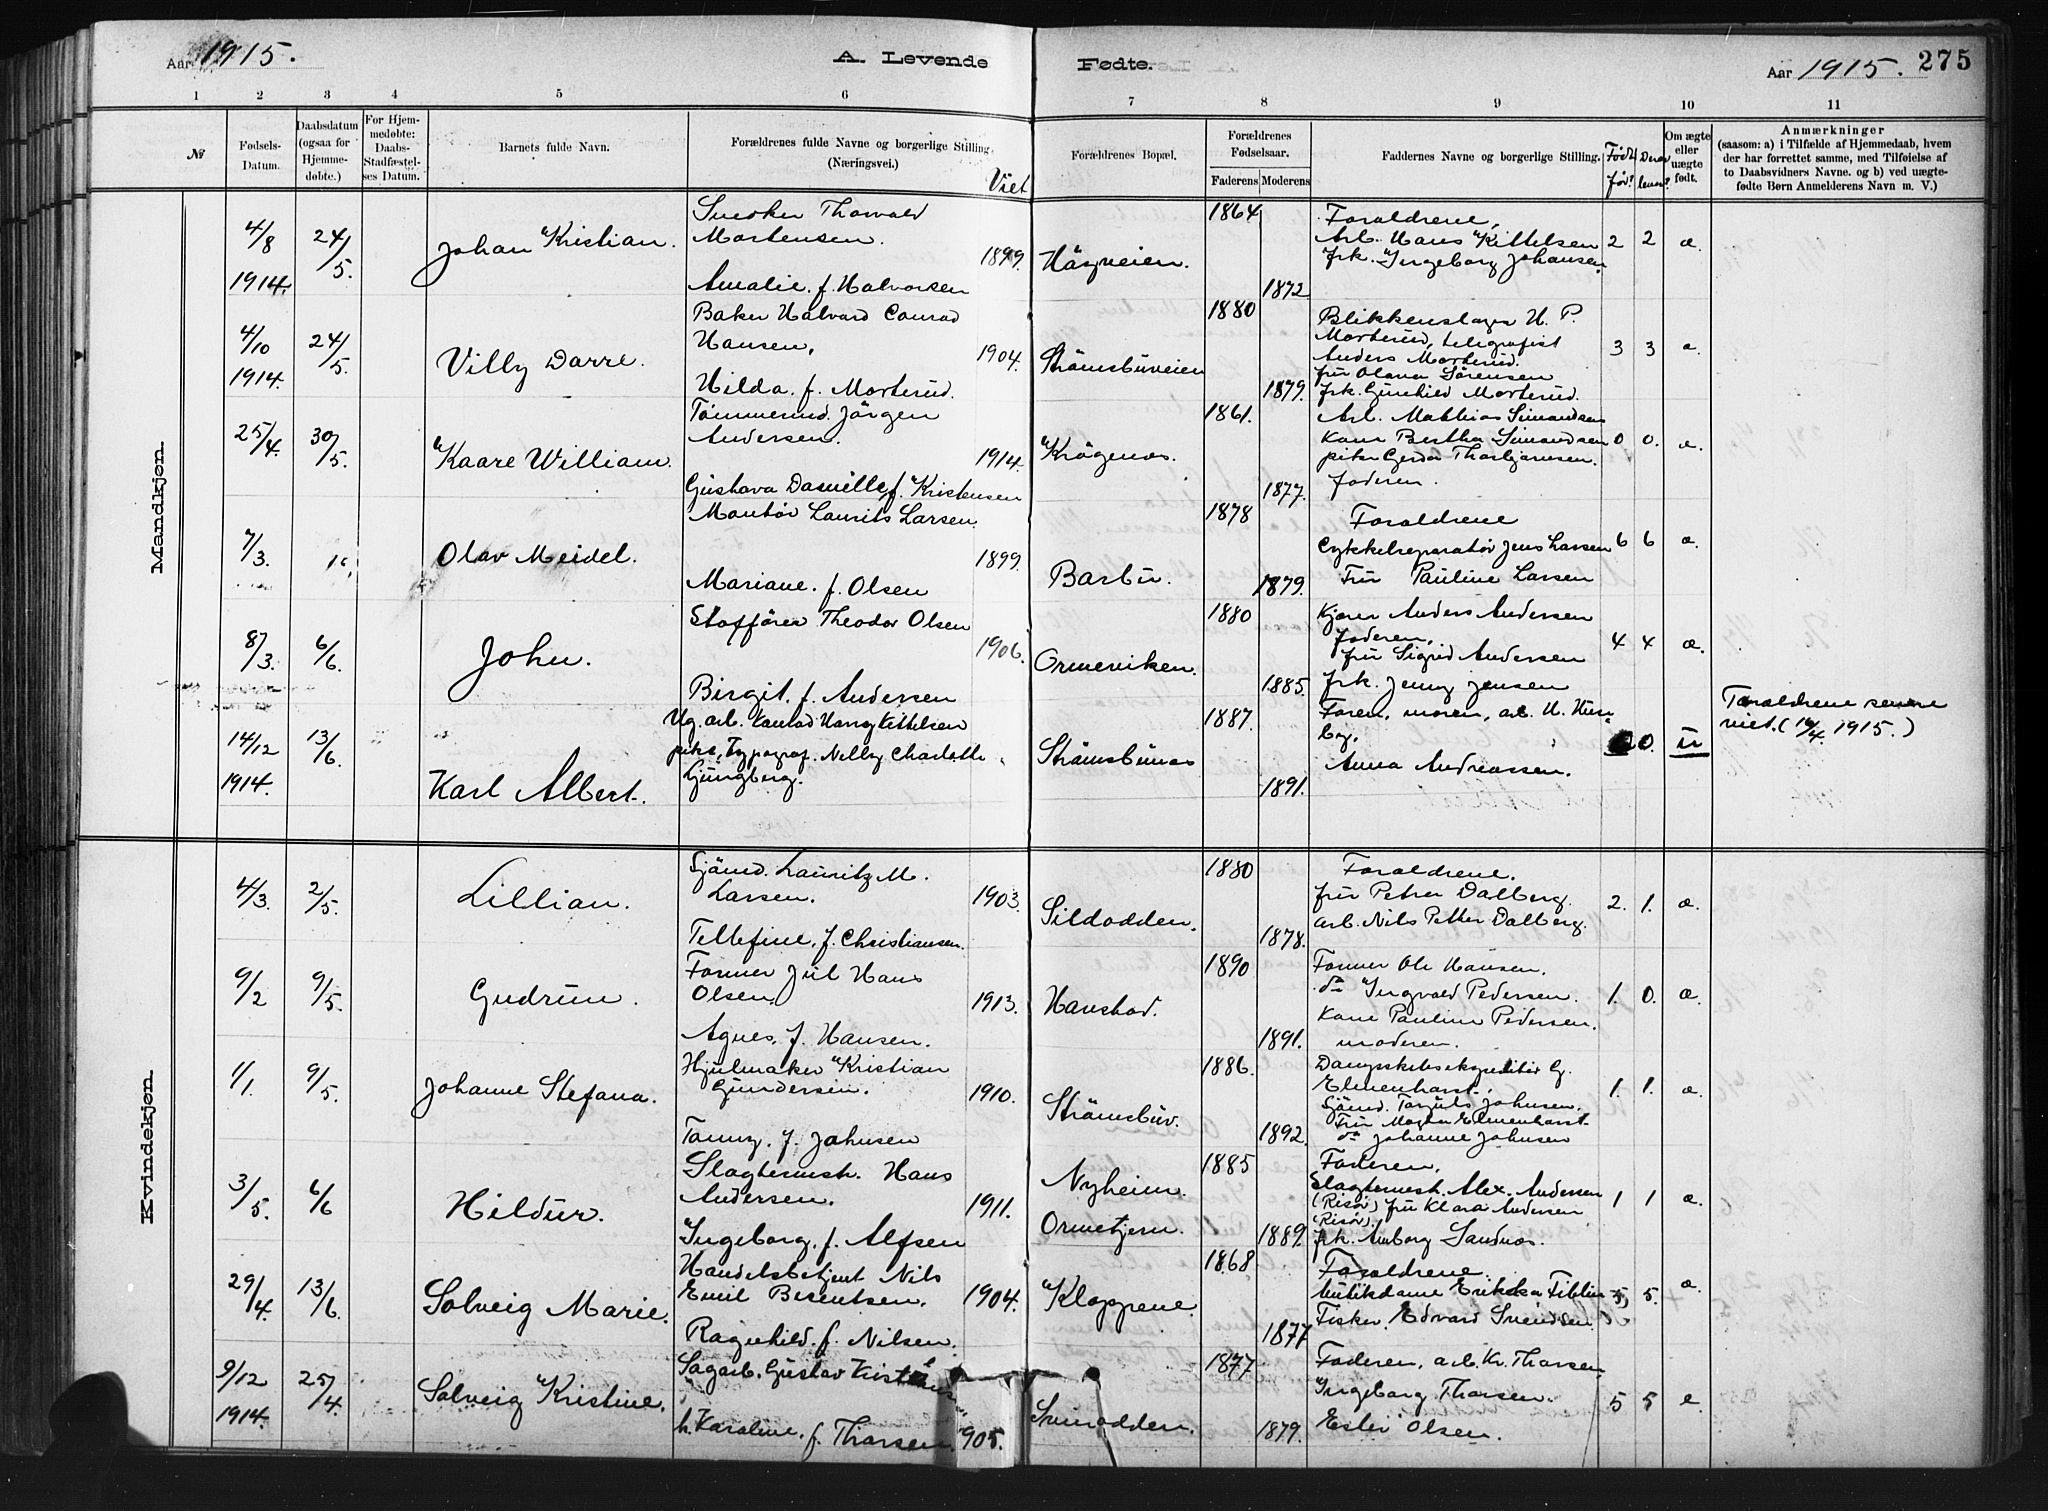 Aar 1915.
A. Levende Fødte.
Aar 1915. 275
1 2 3 4 5 6 7 8 9 10 11
№
Fødsels-Datum.
Daabsdatum (ogsaa for Hjemme-døbte.)
For Hjem-medøbte: Daabs-Stadfæstel-ses Datum.
Barnets fulde Navn.
Forældrenes fulde Navne og borgerlige Stilling (Næringsvei.)
Viet
Forældrenes Bopæl.
Forældrenes Fødselsaar.
Faderens Moderens
Faddernes Navne og borgerlige Stilling.
Født før?
Derav lever?
Om ægte eller uægte født.
Anmærkninger
(saasom: a) i Tilfælde af Hjemmedaab, hvem
der har forrettet samme, med Tilføielse af
to Daabsvidners Navne. og b) ved uægte-
fødte Børn Anmelderens Navn m. V.)
Mandkjøn.
4/8 1914. 24/5. Johan Kristian.
Snedker Thorvald
Mortensen.
Amalie. f. Halvorsen
1899. 1864 1872
Forældrene,
Arb. Hans Kittelsen
frk. Ingeborg Johansen.
2 2 æ.
4/10 1914. 24/5. Villy Darre.
Baker Halvard Conrad
Hansen,
Hilda. f. Morterud.
1904. Strømsbuveien 1880 1879.
Blikkenslager H. P.
Morterud, telegrafist
Anders Morterud.
fru Olava Sørensen
frk. Gunhild Morterud.
3 3 æ.
25/4. 30/5. Kaare William.
Tømmermd. Jørgen
Andersen.
Gustava f. Kristensen
1914. Krøgenes. 1861. 1877.
Arb. Mathias Simonsen
Kone Bertha Simonsen
pike Gerda Thorbjørnsen.
faderen.
0 0. æ.
7/3. Olav Meidel.
Montør Laurits Larsen.
Mariane. f. Olsen
1899. Barbu. 1878 1879.
Forældrene
Cykkelreparatør Jens Larsen
Fru Pauline Larsen
6 6 æ.
8/3. 6/6. John.
Theodor Olsen
Birgit. f. Andersen
1906. Ormeviken. 1880 1885.
Anders Andersen
faderen.
fru Sigrid Andersen
frk. Jenny Jensen
4 4 æ.
14/12 1914. 13/6. Karl Albert.
Ug. arb. Konrad Harry Kittelsen
pike, Typograf. Nelly Charlotte
Ljungberg.
Strømsbunes 1887. 1891.
Faren, moren, arb. H. Hus-
by,
Anna Andreassen.
0. u
Forældrene senere
viet. (16/4. 1915.)
Kvindekjøn.
4/3. 2/5. Lillian.
Sjømd. Lauritz M.
Larsen.
Tellefine. f. Christiansen.
1903. Sildodden. 1880 1878.
Forældrene.
fru Petra Dalberg.
arb. Nils Petter Dalberg.
2. 1. æ.
9/2 9/5. Gudrun.
Former Jul Hans
Olsen,
Agnes, f. Hansen.
1913. Hanstad. 1890 1891.
Former Ole Hansen.
do Ingvald Pedersen.
Kone Pauline Pedersen.
moderen.
1. 0. æ.
1/1. 9/5. Johanne Stefana.
Hjulmaker Kristian
Gundersen.
Tommy. f. Johnsen
1910. Strømsbu. 1886. 1892.
Dampskibsekspeditør G.
Elmenhorst.
Sjømd. Johnsen.
Fru Magda Elmenhorst
do Johanne Johnsen
1. 1. æ.
3/5. 6/6 Hildur.
Slagtermstr. Hans
Andersen.
Ingeborg. f. Alfsen
1911. Nyheim.
Ormetjern. 1885 1889.
Faderen,
Slagtermestr. Alex. Andersen
(Risør) fru Klara Andersen
(Risør).
frk. Amborg Sandnes.
1 1 æ.
29/4. 13/6. Solveig Marie.
Handelsbetjent Nils
Emil Berentsen.
Ragnhild. f. Nilsen.
1904. Kloppene. 1868 1877
Forældrene.
Fisker. Edvard Svendsen
5) 5. æ.
9/12 1914. 25/4. Solveig Kristine.
Sagarb. Gustav
h. Karoline. f. Thorsen
905. Svinodden. 1877 1879.
Faderen, arb. Kr. Thorsen
Ingeborg Thorsen.
Olsen.
5 5 e.